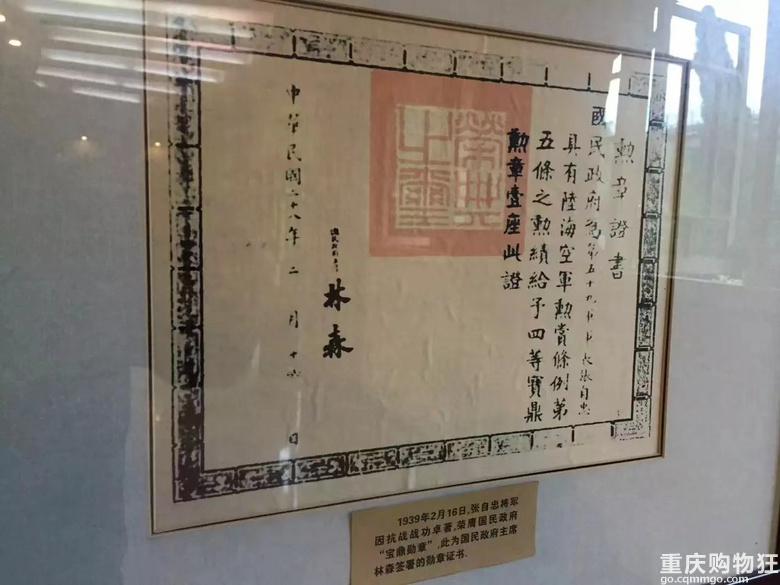 勲章證書
國民政府為第五十九軍軍長張自忠
具有陸海空軍勲賞條例第
五條之勲績給予四等寶鼎
勲章壹座此證
榮典之璽
林森
中華民國二十八年二月十六日
1939年2月16日,张自忠将军
因抗战战功卓著,荣膺国民政府
“宝鼎勋章”,此为国民政府主席
林森签署的勋章证书.
重庆购物狂
go.cqmmgo.com